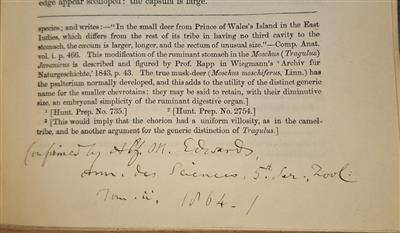 edge appear scolloped: the capsula is large.
species; and writes:—"In the small deer from Prince of Wales's Island in the East
Indies, which differs from the rest of its tribe in having no third cavity to the
stomach, the cæcum is larger, longer, and the rectum of unusual size."—Comp. Anat.
vol. i. p. 466. This modification of the ruminant stomach in the Moschus (Tragulus)
Javanicus is described and figured by Prof. Rapp in Wiegmann's 'Archiv für
Naturgeschichte,' 1843, p. 43. The true musk-deer (Moschus moschiferus, Linn.) has
the psalterium normally developed, and this adds to the utility of the distinct generic
name for the smaller chevrotains: they may be said to retain, with their diminutive
size, an embryonal simplicity of the ruminant digestive organ.]
¹ [Hunt. Prep. No. 735.] ² [Hunt. Prep. No. 2754.]
³ [This would imply that the chorion had a uniform villosity, as in the camel-
tribe, and be another argument for the generic distinction of Tragulus.]
Confirmed by Alf. M. Edwards,
Ann. des Sciences, 5th Ser. Zool:
Tom. ii, 1864.